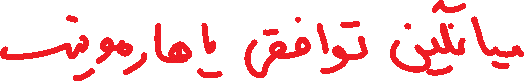 میانگین توافقی یا هارمونیک